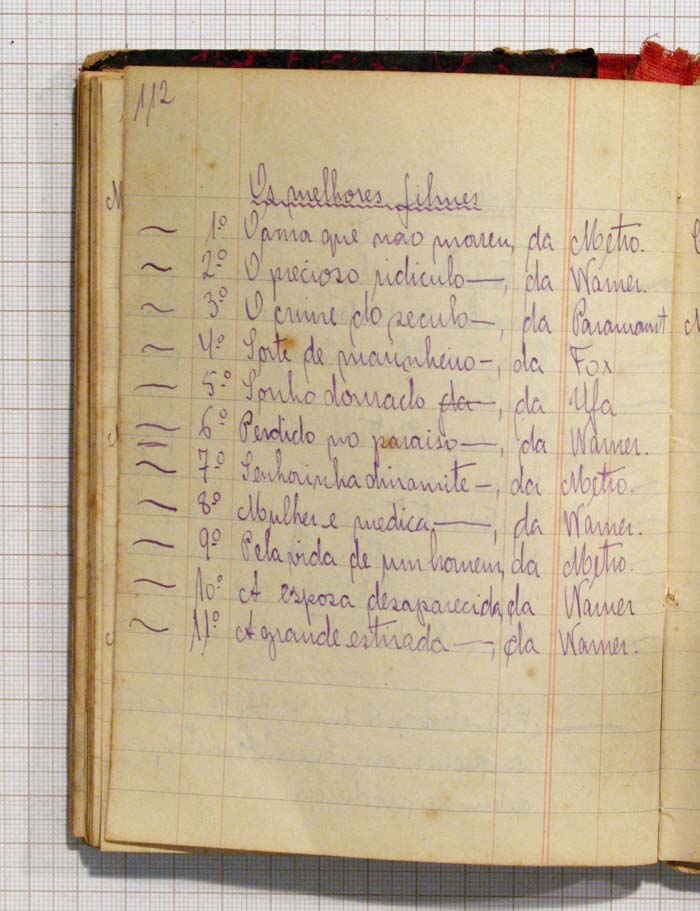 112
Os melhores filmes
1º O amor que não morreu, da Metro.
2º O precioso ridiculo —, da Warner.
3º O crime do seculo —, da Paramount
4º Sorte de marinheiro —, da Fox
5º Sonho dourado da —, da Ufa
6º Perdido no paraiso —, da Warner.
7º Senhorinha dinamite —, da Metro.
8º Mulher e medica, —, da Warner.
9º Pela vida de um homem, da Metro.
10º A esposa desaparecida, da Warner
11º A grande estirada —, da Warner.